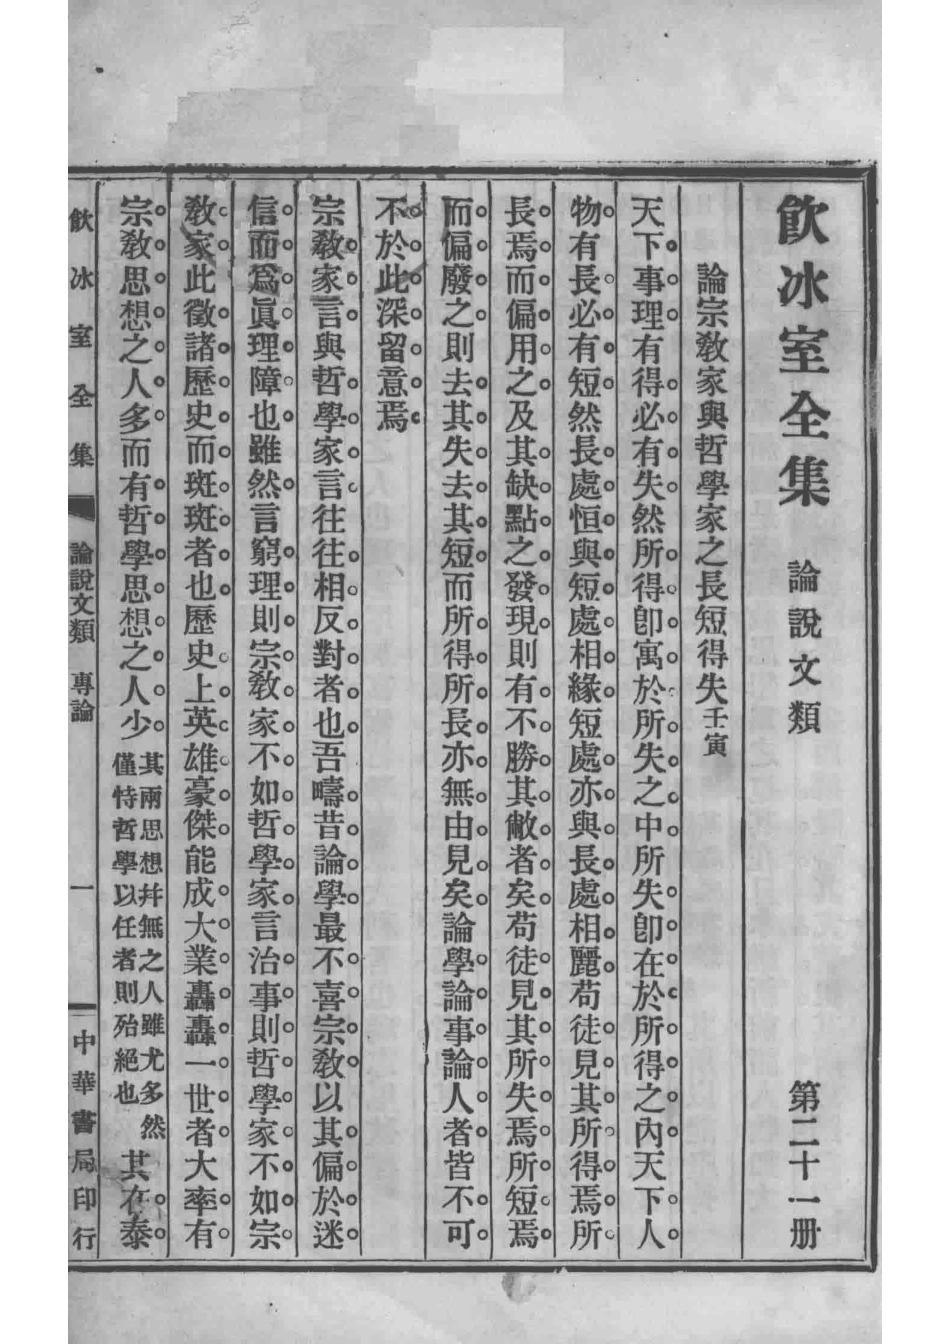 飮冰室全集 論說文類 第二十一册
論宗敎家與哲學家之長短得失壬寅
天下事理有得必有失然所得卽寓於所失之中所失卽在於所得之內天下人
物有長必有短然長處恒與短處相緣短處亦與長處相麗苟徒見其所得焉所
長焉而偏用之及其缺點之發現則有不勝其敝者矣苟徒見其所失焉所短焉
而偏廢之則去其失去其短而所得所長亦無由見矣論學論事論人者皆不可
不於此深留意焉
宗敎家言與哲學家言往往相反對者也吾疇昔論學最不喜宗敎以其偏於迷
信而爲眞理障也雖然言窮理則宗敎家不如哲學家言治事則哲學家不如宗
敎家此徵諸歷史而斑斑者也歷史上英雄豪傑能成大業轟轟一世者大率有
宗敎思想之人多而有哲學思想之人少其兩思想幷無之人雖尤多然僅恃哲學以任者則殆絕也其在泰
飮冰室全集 論說文類 專論 一 中華書局印行